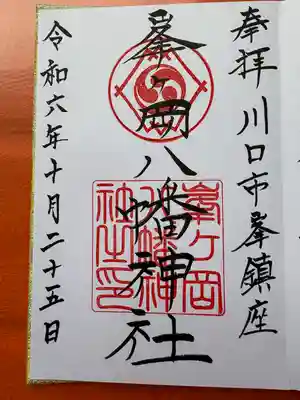 奉拝川口市峯鎮座
峯ヶ岡八幡神社
峯ヶ岡八幡神社之印
令和六年十月二十五日